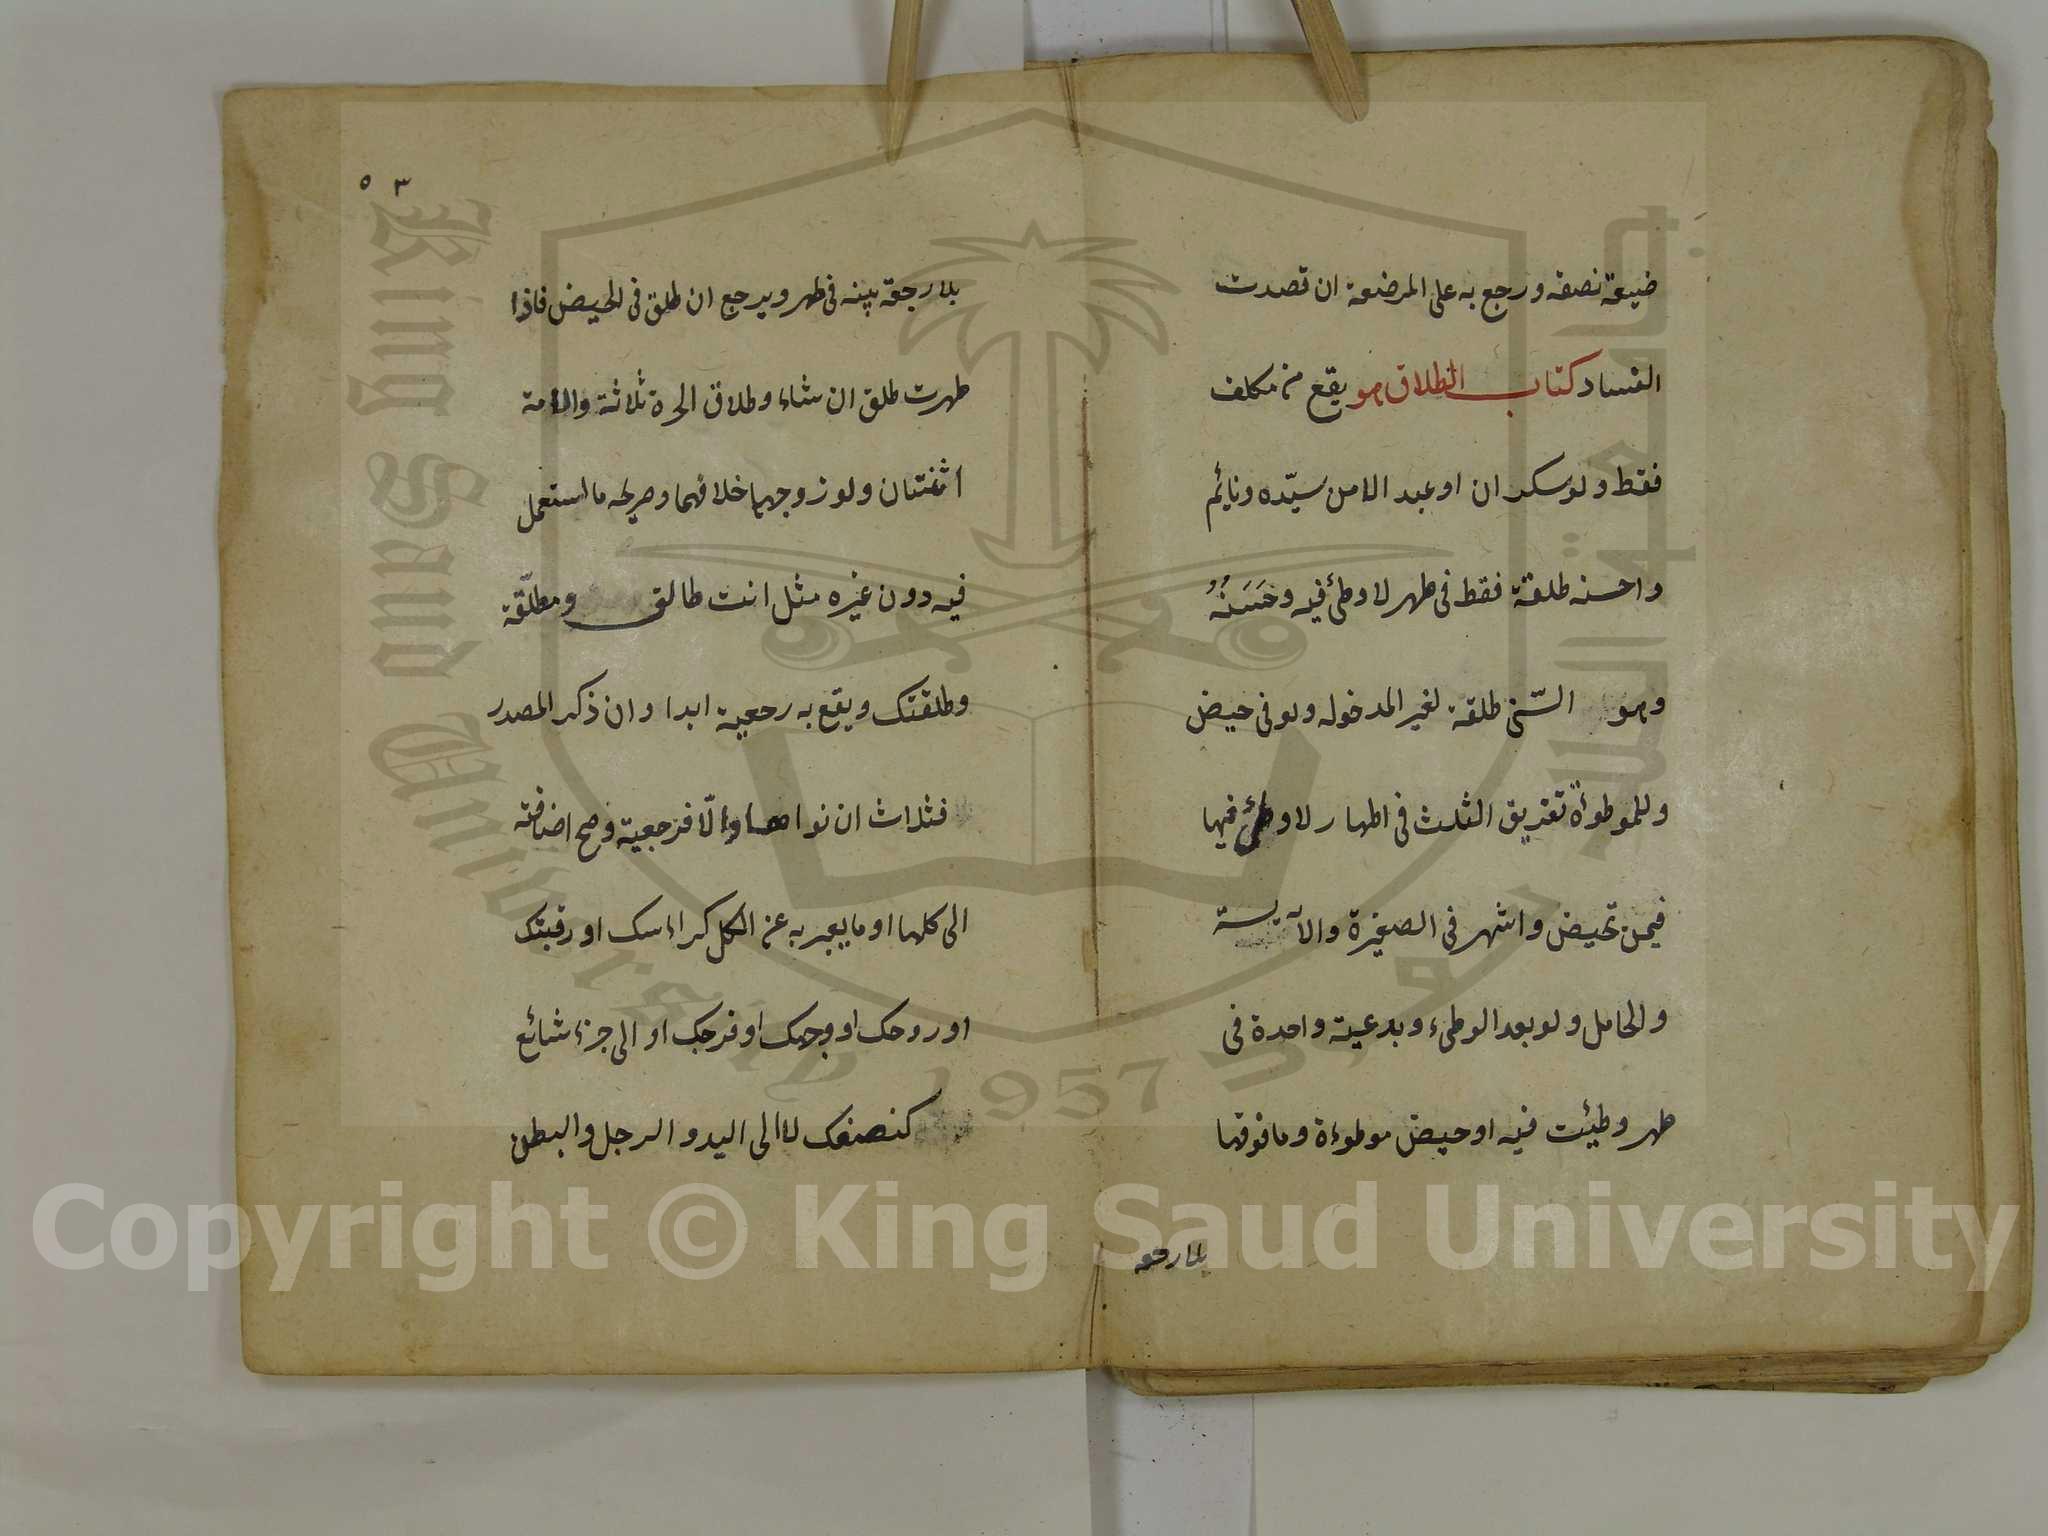 ضيعة نصفه ورجع به على المرضعة ان قصدت
الفساد كتاب الطلاق هو يقع من مكلف
فقط ولو سكران او عبد الا من سيّده ونائم
واحسنه طلقة فقط فى طهر لا وطئ فيه وحَسَنُهُ
وهو السّنى طلقة لغير المدخوله ولو فى حيض
وللموطوأة تفريق الثلث فى اطهار لا وطئ فيها
فيمن تحيض واشهر فى الصغيرة والآيسة
والحامل ولو بعد الوطىء وبدعية واحدة فى
طهر وطيئت فيه او حيض موطوءة وما فوقها
بلا رجعه
٥٣
بلا رجعة بينه فى طهر ويرجع ان طلق فى الحيض فاذا
طهرت طلق ان شاء وطلاق الحرة ثلاثة والامة
اثنتان ولو زوجهما خلافهما وصريحه ما استعمل
فيه دون غيره مثل انت طالق ومطلّقة
وطلقتك ويقع به رجعية ابدا وان ذكر المصدر
فثلاث ان نواها والّا فرجعية وصح اضافته
الى كلها او ما يعبر به عن الكل كراءسك او رقبتك
او روحك او وجهك او فرجك او الى جزء شائع
كنصفك لا الى اليد والرجل والبطن
King Saud University
1957
جامعة الملك سعود
Copyright © King Saud University